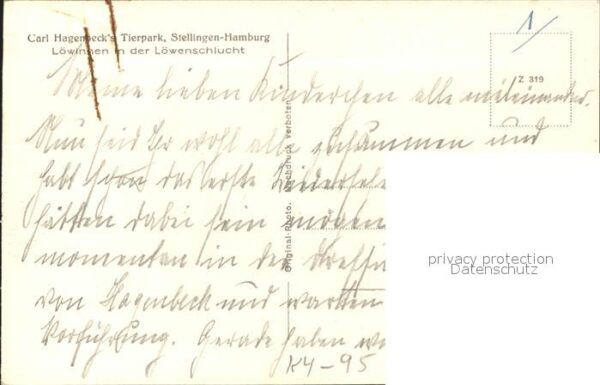 Carl Hagenbeck's Tierpark, Stellingen-Hamburg
Löwinnen in der Löwenschlucht
1/
Z 319
Original-Photo. Nachdruck verboten.
Meine lieben Kinderchen alle miteinander.
Nun seid Ihr wohl alle zusammen und
habt schon das erste
hätten dabei sein mögen
momentan in der
von Hagenbeck und warten
Vorführung. Gerade haben
privacy protection
Datenschutz
K4-95